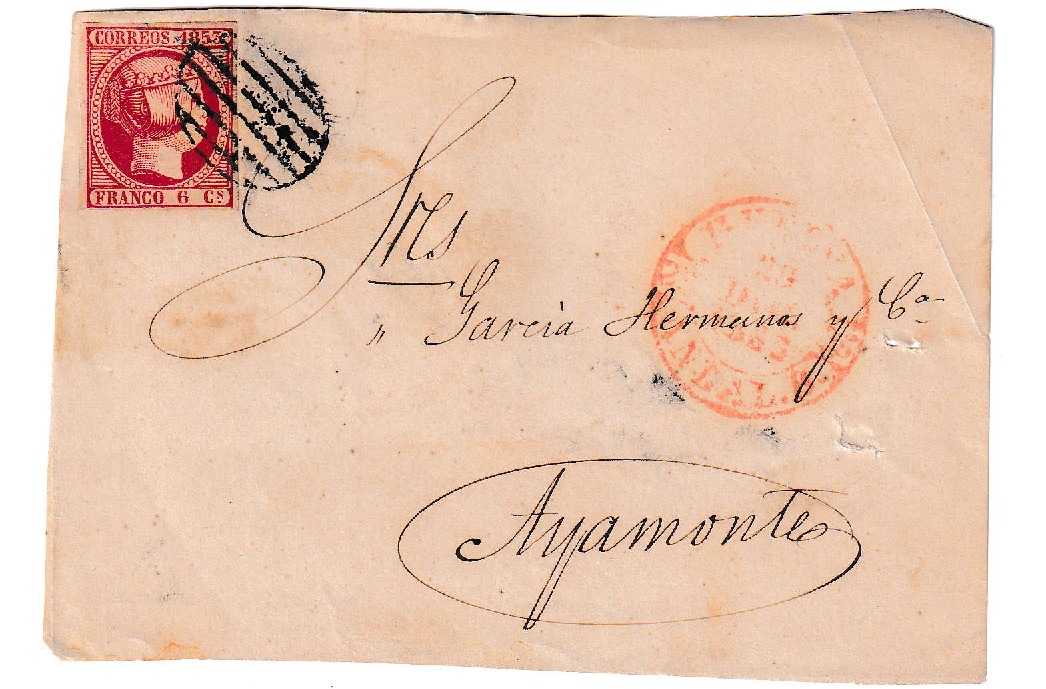 CORREOS 1853
FRANCO 6 Cs
Sres
„ García Hermanos y Ca
Ayamonte